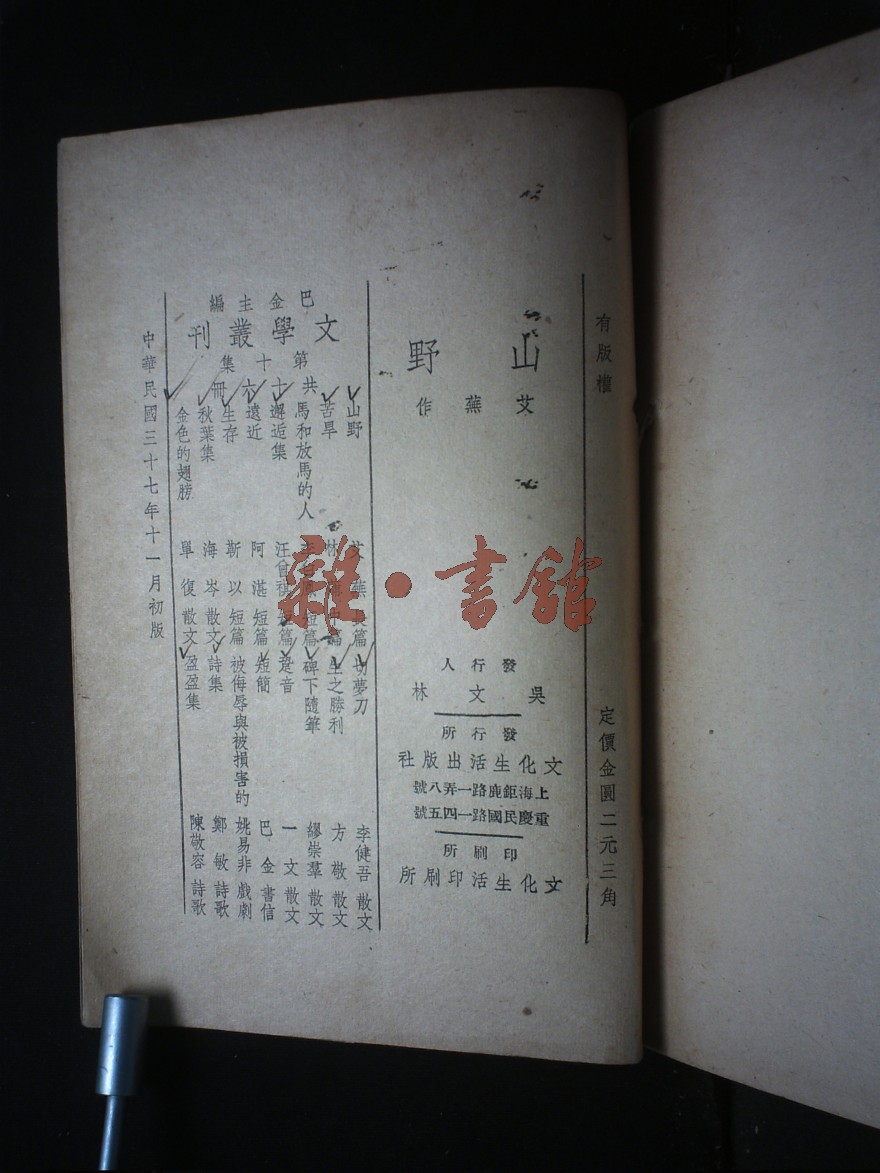 有版權 定價金圓二元三角
山野
艾蕪作
發行人
吳文林
發行所
文化生活出版社
上海鉅鹿路一弄八號
重慶民國路一四五號
印刷所
文化生活印刷所
巴金主編
文學叢刊
第十集
共十六冊
山野 艾蕪 長篇 切夢刀 李健吾 散文
苦旱 林 篇 生之勝利 方敬 散文
馬和放馬的人 短篇 碑下隨筆 繆崇羣 散文
邂逅集 汪曾祺 短篇 跫音 一文 散文
遠近 阿湛 短篇 短簡 巴金 書信
生存 靳以 短篇 被侮辱與被損害的 姚易非 戲劇
秋葉集 海岑 散文 詩集 鄭敏 詩歌
金色的翅膀 單復 散文 盈盈集 陳敬容 詩歌
中華民國三十七年十一月初版
雜·書館